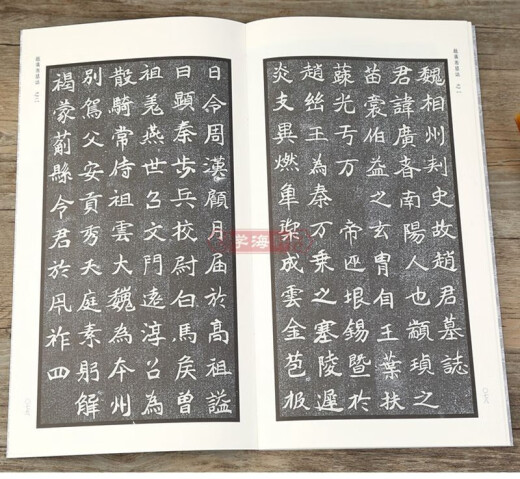 魏相州刾史故趙君墓誌
君諱廣者南陽人也顓瑣之
苗裳伯益之玄冑自王葉扶
蔬光丂万帝迊垠錫暨於
趙幽王為秦万乗之塞陵遲
炎支異燃皐檕成雲金芭板
日令周漢顧月届於高祖謚
曰顯秦步兵校尉白馬矦曽
祖羗燕世召文門遠淳召為
散騎常侍祖雲大魏為本州
別駕父安貢秀天庭素躬解
褐蒙薊縣令君於凩祚四
学海